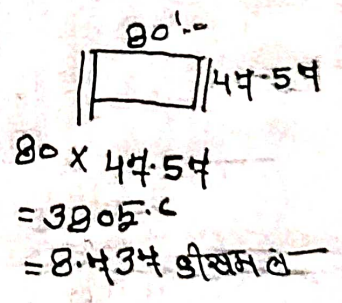 80'-0
47.57
80 × 47.57
= 3805.6
= 8.737 डीसमल